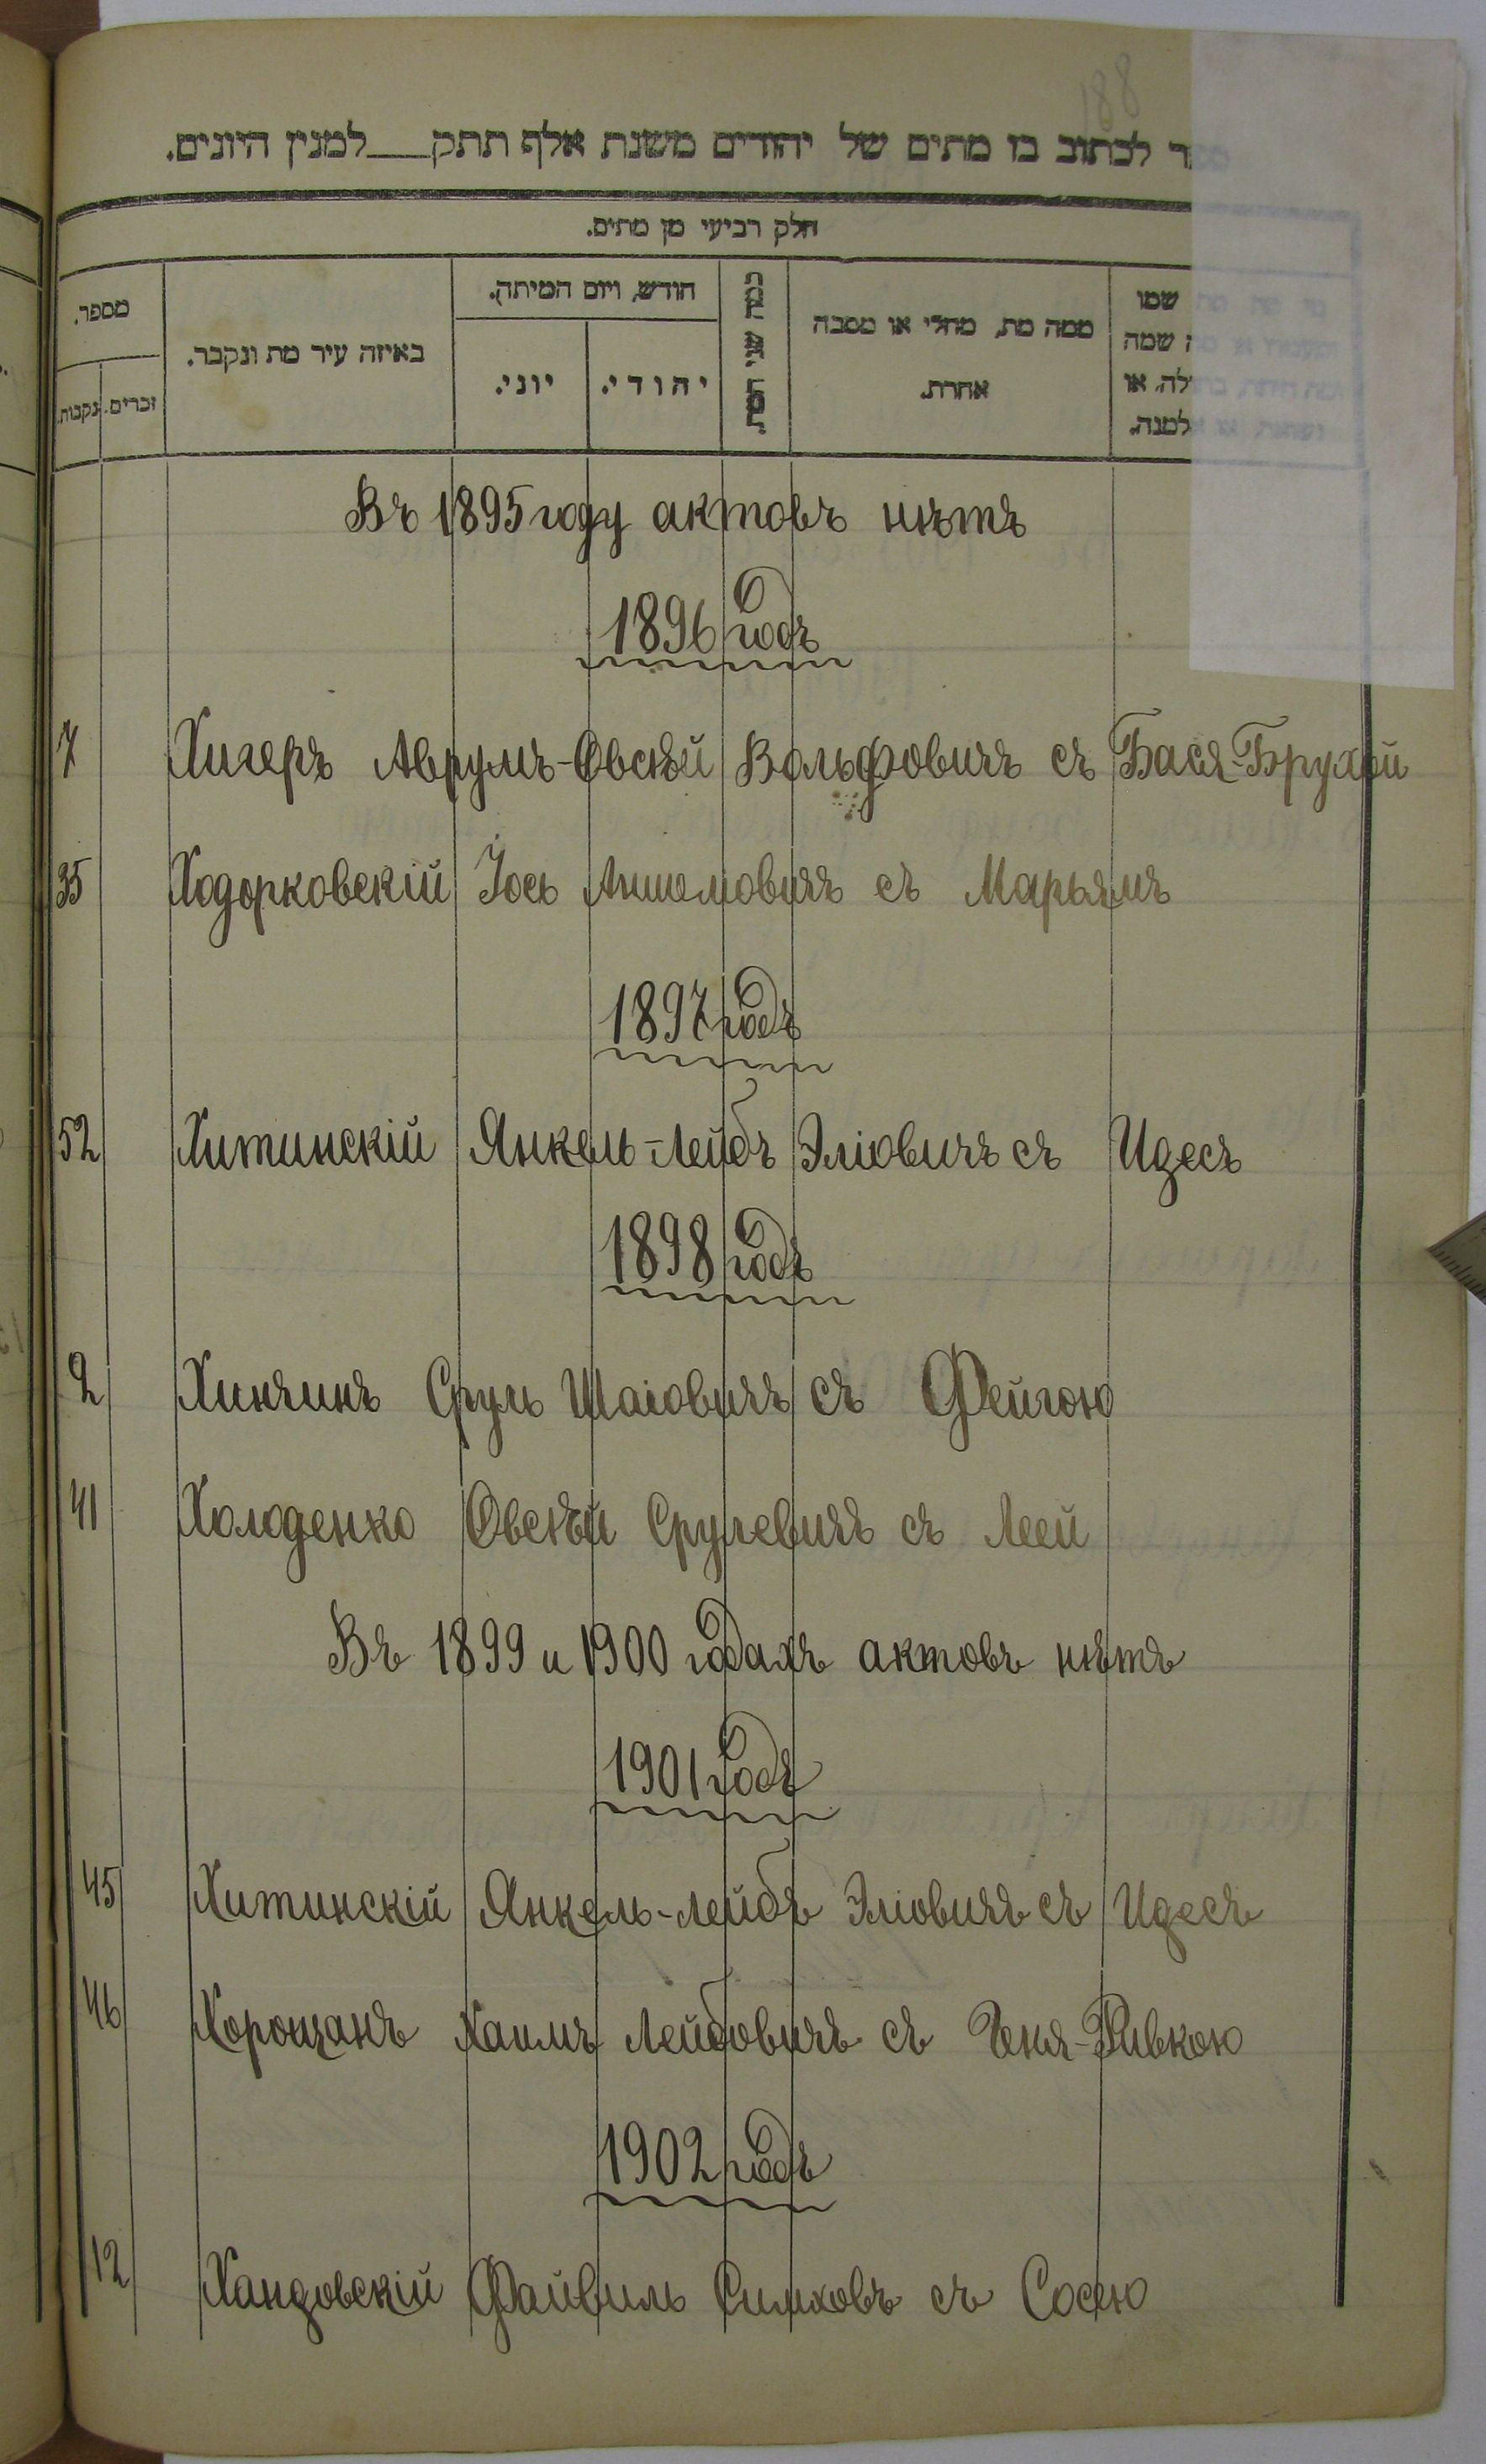 188
ספר לכתוב בו מתים של יהודים משנת אלף תתק___למנין היונים.
חלק רביעי מן מתים.
מספר.
זכרים.
נקבות.
באיזה עיר מת ונקבר.
חודש, ויום המיתה.
יוני.
יהודי.
כמה שני המת.
ממה מת, מחלי או מסבה
אחרת.
שמו
שמה
לה, או
למנה.
Въ 1895 году актовъ нѣтъ
1896 годъ
7 Хигеръ Аврумъ-Овсѣй Вольфовичъ съ Бася-Брухой
35 Ходорковскій Іось Аншоловичъ съ Марьямъ
1897 годъ
52 Хитинскій Янкель-Лейбъ Эліовичъ съ Идесъ
1898 годъ
2 Хинчинъ Сруль Шаіовичъ съ Фейгою
41 Холоденко Овсѣй Срулевичъ съ Леей
Въ 1899 и 1900 годахъ актовъ нѣтъ
1901 годъ
45 Хитинскій Янкель-Лейбъ Эліовичъ съ Идесъ
46 Хорощанъ Хаимъ Лейбовичъ съ Геня-Ривкою
1902 годъ
12 Хандовскій Файвиль Симховъ съ Сосею